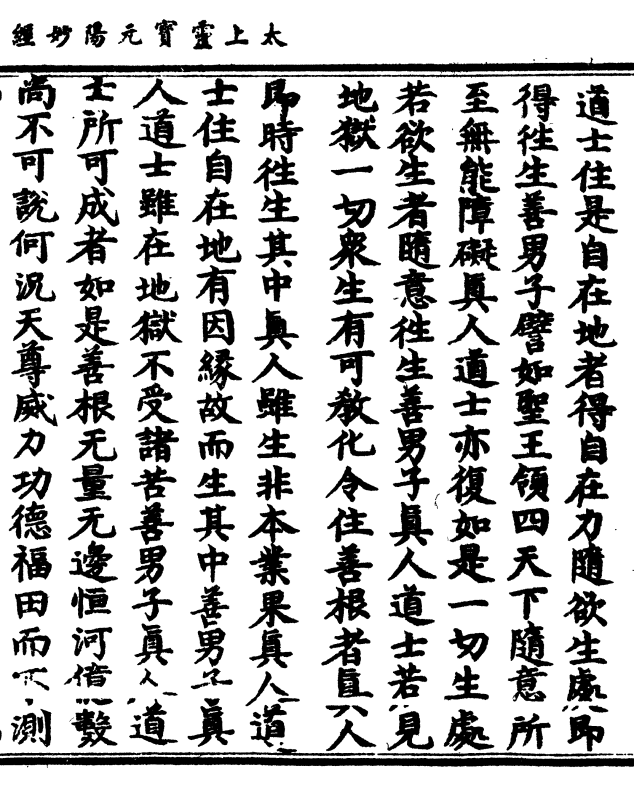 太上靈寶元陽妙經
道士住是自在地者得自在力隨欲生處即
得徃生善男子譬如聖王領四天下隨意所
至無能障礙真人道士亦復如是一切生處
若欲生者隨意徃生善男子真人道士若見
地獄一切衆生有可教化令住善根者真人
即時徃生其中真人雖生非本業果真人道
士住自在地有因緣故而生其中善男子真
人道士雖在地獄不受諸苦善男子真人道
士所可成者如是善根无量无邊恒河僧數
尚不可說何況天尊威力功德福田而可測